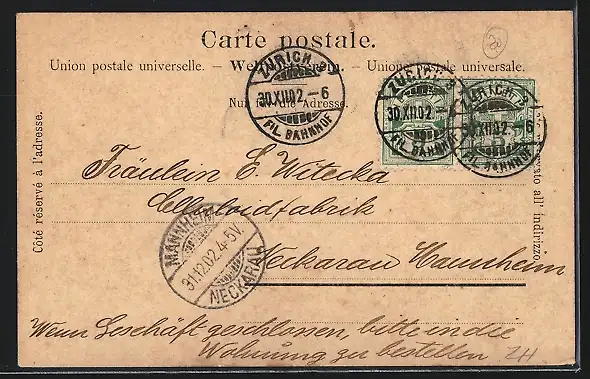 Carte postale.
Union postale universelle. — Weltpostverein. — Unione postale universale.
Nur für die Adresse.
Côté réservé à l'adresse.
Lato riservato all' indirizzo.
ZÜRICH 3
30.XII.02.–6
FIL. BAHNHOF
ZÜRICH 3
30.XII.02.
FIL. BAHNHOF
ZÜRICH 3
XII.02.–6
FIL. BAHNHOF
Fräulein E. Witecka
Celluloidfabrik
Neckarau Mannheim
MANNHEIM
31.12.02.4-5V.
NECKARAU
Wenn Geschäft geschlossen, bitte in die
Wohnung zu bestellen
ZH